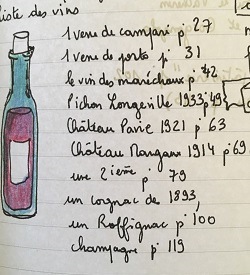 liste des vins
1 verre de campari p° 27
1 verre de porto p° 31
le vin des maréchaux p° 42
Pichon Longeville 1933 p°49
Château Pavie 1921 p° 63
Château Margaux 1914 p°69
une 2ième p° 79
un cognac de 1893,
un Roffignac p° 100
champagne p° 119